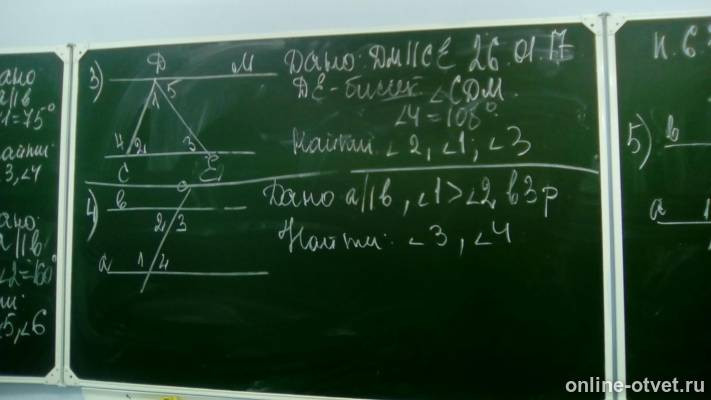 ано
а||в
∠1=75°
айти:
3,∠4
ано:
а||в
∠2=160°
ти:
∠5,∠6
3)
D M
1 5
4 2 3
C E
Дано: DM||CE 26.01.17
DE-биссек ∠CDM.
∠4=108°.
Найти: ∠2, ∠1, ∠3
4)
в
2 3
а 1 4
Дано а||в, ∠1>∠2 в 3 р
Найти: ∠3, ∠4
п. 6
5)
в
а 1
online-otvet.ru